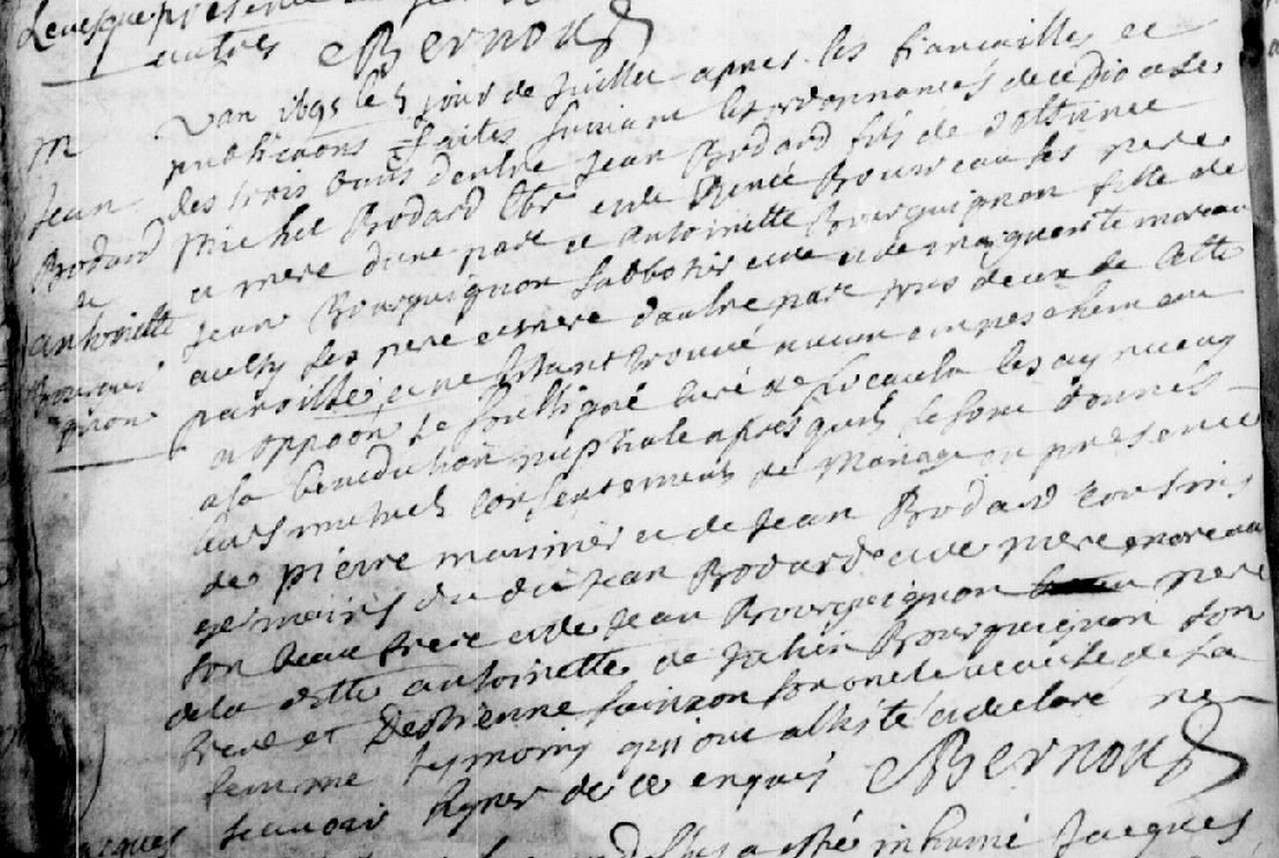 Levesque presence
autres Bernou
M
Jean
Brodard
et
antoinette
Bourgui
gnon
L'an 1695 le 5 jour de Juillet apres les fiancailles et
publications faites suivant les ordonnances de ce Diocese
des trois bans d'entre Jean Brodard fils de
Michel Brodard et de Renée les pere
et mere d'une part et Antoinette Bourguignon fille de
Jean Bourguignon et de Marguerite moreau
aussy ses pere et mere d'autre part tous deux de Cette
paroisse et ne s'etant trouvé aucun empeschement
n'y oppoon Je soussigné Curé de les ay receus
a la benediction nuptiale apres quils se sont donnés
leurs mutuels Consentements de Mariage en presence
de pierre et de Jean Brodard Cousins
germains du dit Jean Brodard et de moreau
son beau frere et de Jean Bourguignon pere
de la ditte antoinette de Bourguignon son
frere et D'estienne son oncle a cause de sa
femme tesmoins qui ont assisté et declaré ne
scavoir signer de ce enquis Bernou
Jacques
a esté inhumé Jacques